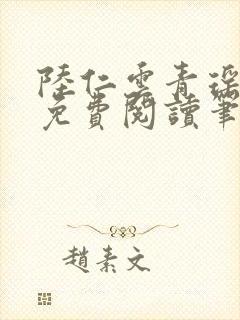 陸仁雲青瑤
免費閱讀筆
趙素文